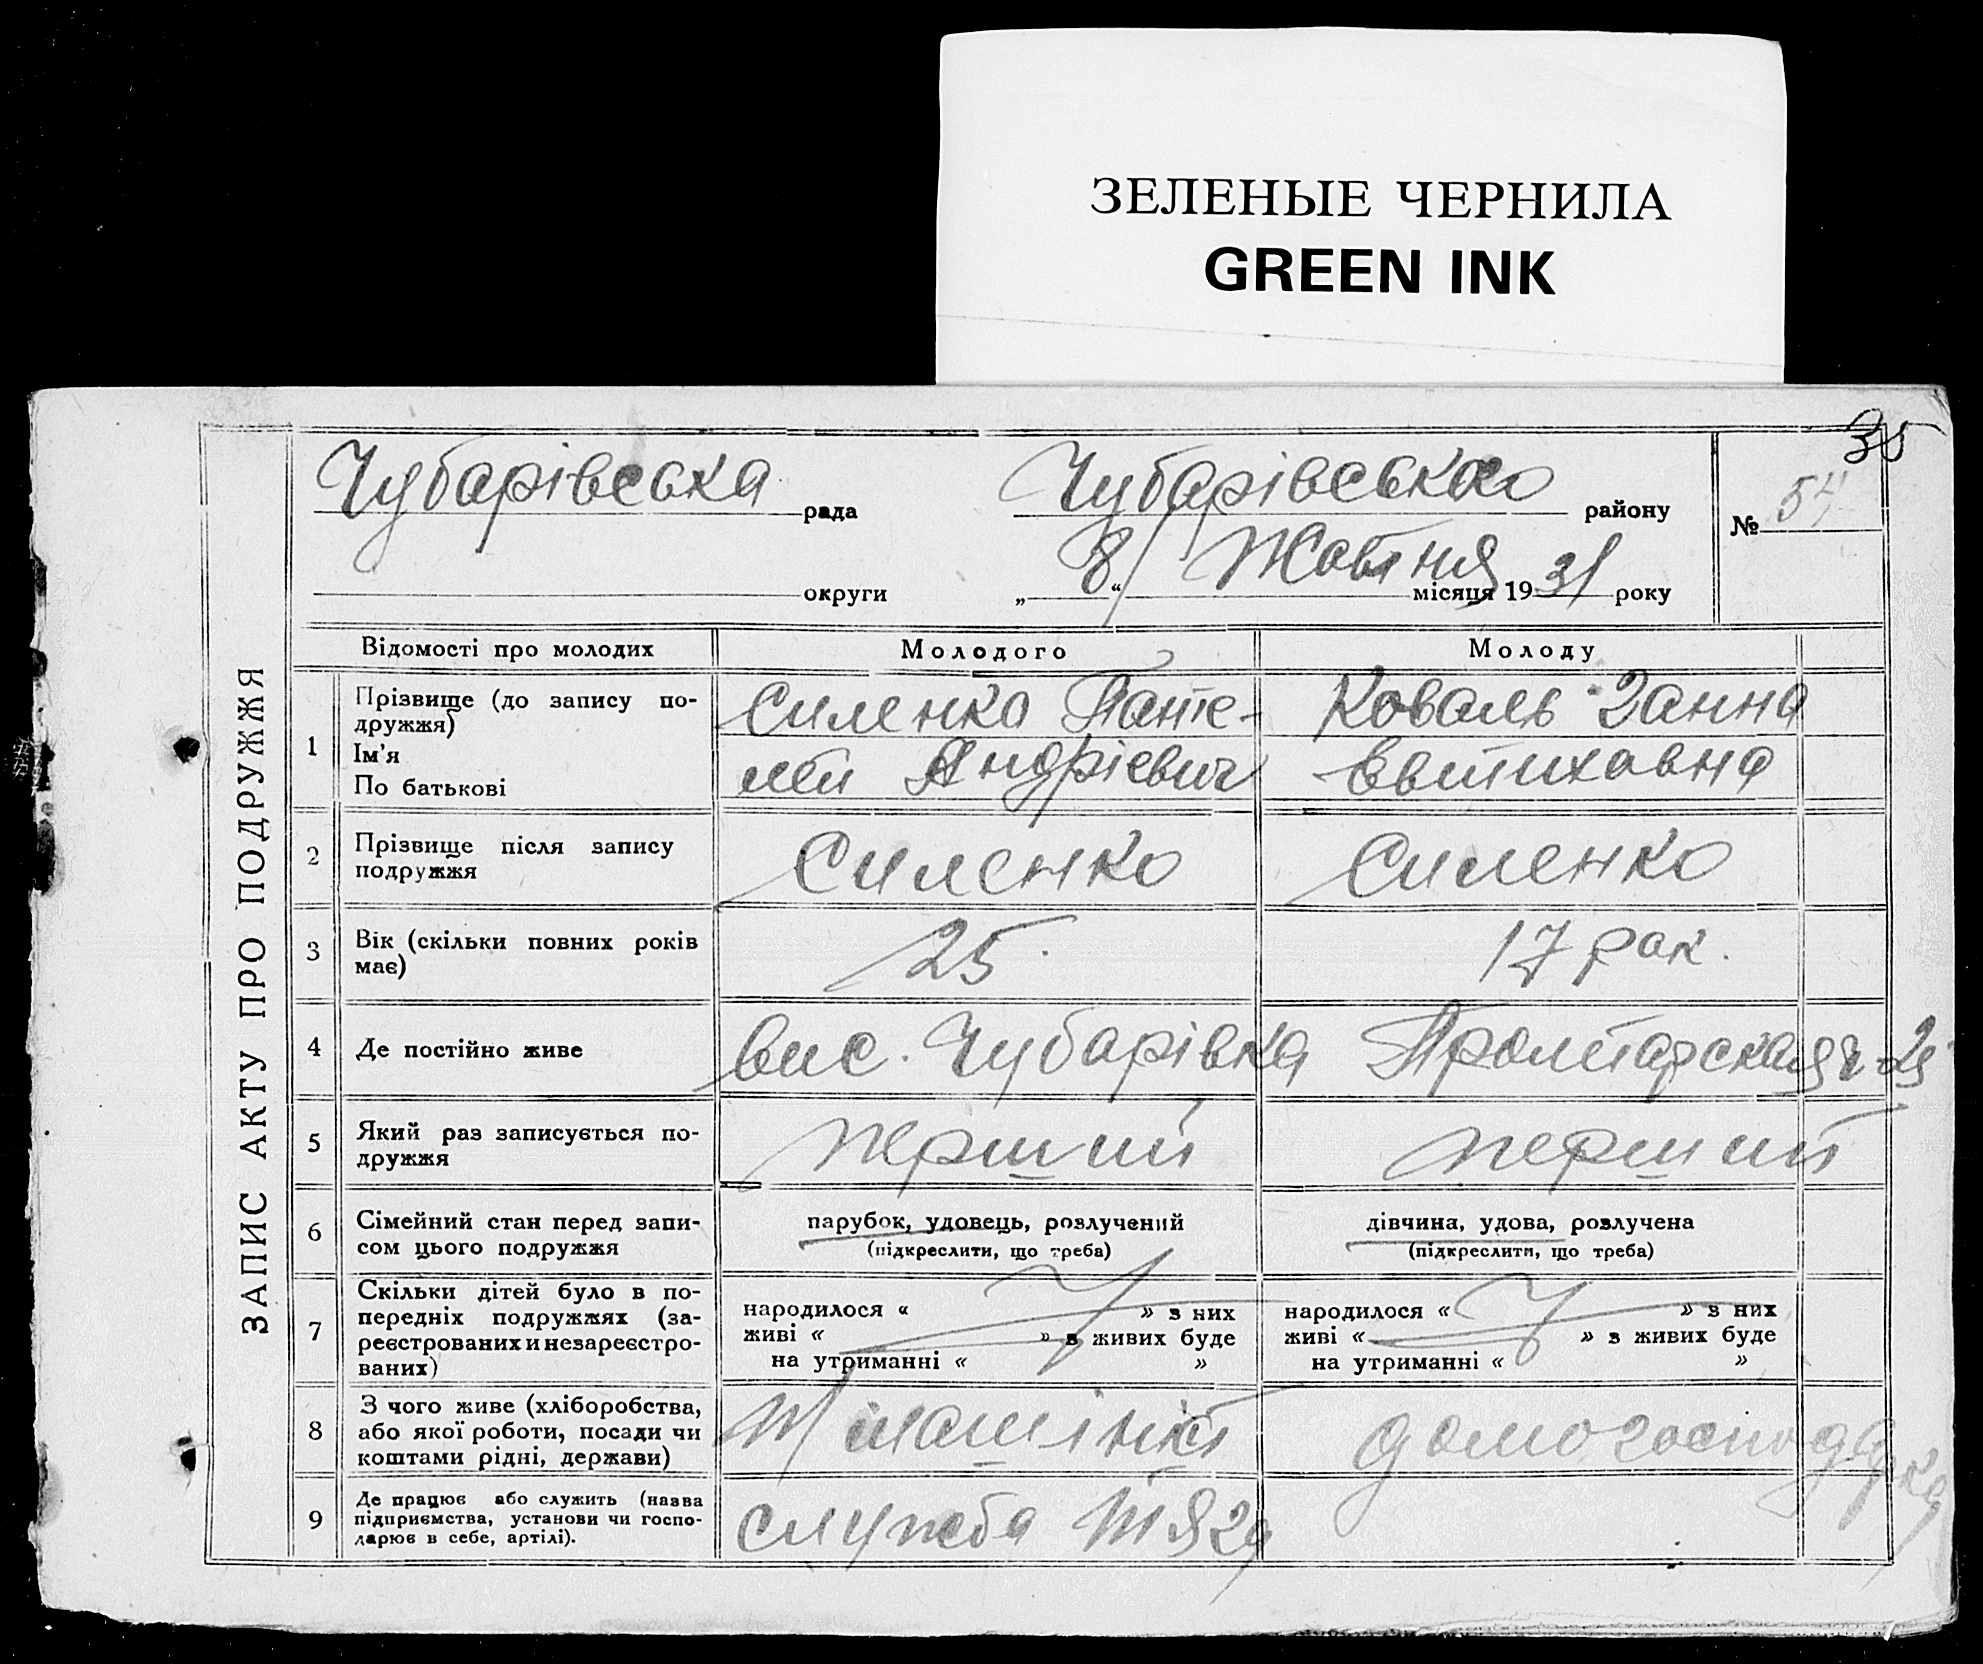 ЗЕЛЕНЫЕ ЧЕРНИЛА
GREEN INK
35
Чубарівська рада
Чубарівсько району
№ 54
округи
„ 8 “ Жовтня місяця 1931 року
ЗАПИС АКТУ ПРО ПОДРУЖЖЯ
Відомості про молодих
Молодого
Молоду
1
Прізвище (до запису по-
дружжя)
Ім'я
По батькові
Силенко Панте-
лей Андрієвич
Коваль Ганна
Евтиховна
2
Прізвище після запису
подружжя
Силенко
Силенко
3
Вік (скільки повних років
має)
25
17 рок.
4
Де постійно живе
вис. Чубарівка
Пролетарская
5
Який раз записується по-
дружжя
перший
перший
6
Сімейний стан перед запи-
сом цього подружжя
парубок, удовець, розлучений
(підкреслити, що треба)
дівчина, удова, розлучена
(підкреслити, що треба)
7
Скільки дітей було в по-
передніх подружжях (за-
реєстрованих и незареєстро-
ваних)
народилося « » з них
живі « » з живих буде
на утриманні « »
народилося « » з них
живі « » з живих буде
на утриманні « »
8
З чого живе (хліборобства,
або якої роботи, посади чи
коштами рідні, держави)
домогосподарка
9
Де працює або служить (назва
підприємства, установи чи госпо-
дарює в себе, артілі).
служба